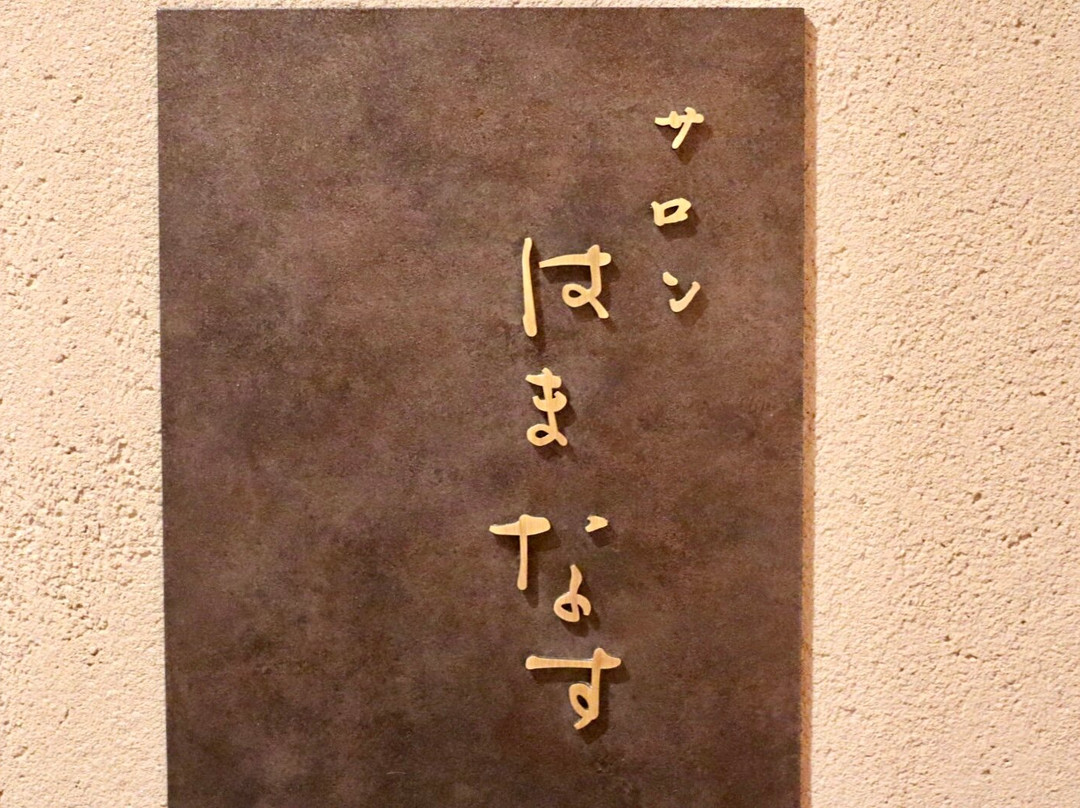 サロン
はまなす